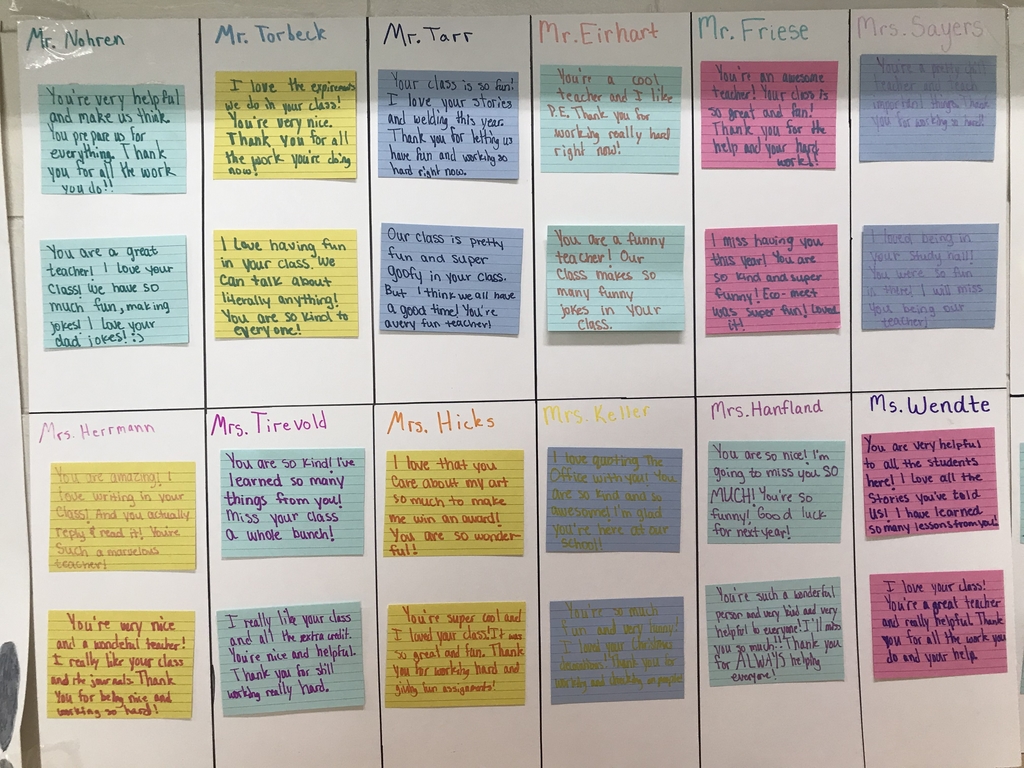 Mr. Nohren
You're very helpful
and make us think.
You prepare us for
everything. Thank
you for all the work
you do!!
You are a great
teacher! I love your
class! We have so
much fun, making
jokes! I love your
dad jokes! :)
Mr. Torbeck
I love the expirements
we do in your class!
You're very nice.
Thank you for all
the work you're doing
now!
I love having fun
in your class. We
can talk about
literally anything!
You are so kind to
everyone!
Mr. Tarr
Your class is so fun!
I love your stories
and welding this year.
Thank you for letting us
have fun and working so
hard right now.
Our class is pretty
fun and super
goofy in your class.
But I think we all have
a good time! You're
a very fun teacher!
Mr. Eirhart
You're a cool
teacher and I like
P.E. Thank you for
working really hard
right now!
You are a funny
teacher! Our
class makes so
many funny
jokes in your
class.
Mr. Friese
You're an awesome
teacher! Your class is
so great and fun!
Thank you for the
help and your hard
work!!
I miss having you
this year! You are
so kind and super
funny! Eco-meet
was super fun! Loved
it!
Mrs. Sayers
You're a pretty chill
teacher and teach
important things! Thank
you for working so hard!
I loved being in
your study hall!
You were so fun
in there! I will miss
you being our
teacher!
Mrs. Herrmann
You are amazing! I
love writing in your
class! And you actually
reply & read it! You're
such a marvelous
teacher!
You're very nice
and a wondeful teacher!
I really like your class
and the journals. Thank
you for being nice and
working so hard!
Mrs. Tirevold
You are so kind! I've
learned so many
things from you!
Miss your class
a whole bunch!
I really like your class
and all the extra credit.
You're nice and helpful.
Thank you for still
working really hard.
Mrs. Hicks
I love that you
care about my art
so much to make
me win an award!
You are so wonder-
ful!
You're super cool and
I loved your class! It was
so great and fun. Thank
you for working hard and
giving fun assignments!
Mrs. Keller
I love quoting The
Office with you! You
are so kind and so
awesome! I'm glad
you're here at our
school!
You're so much
fun and very funny!
I loved your Christmas
decorations. Thank you for
working and checking on people!
Mrs. Hanfland
You are so nice! I'm
going to miss you SO
MUCH! You're so
funny! Good luck
for next year!
You're such a wonderful
person and very kind and very
helpful to everyone! I'll miss
you so much!! Thank you
for ALWAYS helping
everyone!
Ms. Wendte
You are very helpful
to all the students
here! I love all the
stories you've told
us! I have learned
so many lessons from you!
I love your class!
You're a great teacher
and really helpful. Thank
you for all the work you
do and your help.